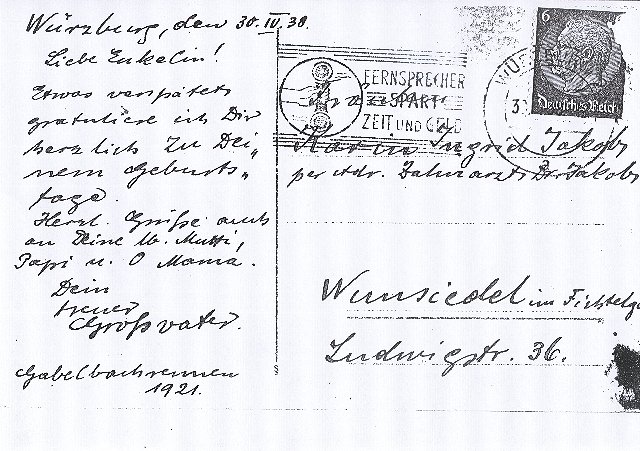 Würzburg, den 30. IV. 38.
Liebe Enkelin!
Etwas verspätet
gratuliere ich Dir
herzlich zu Dei„
nem Geburts„
tage.
Herzl. Grüße auch
an Deine lb. Mutti,
Papi u. O Mama.
Dein
treuer
Großvater.
Gabelbachrennen
1921.
6
FERNSPRECHER
SPART
ZEIT UND GELD
WÜ
Deutsches Reich
Karin Ingrid Jakobs
per Adr. Zahnarzt Dr. Jakobs
Wunsiedel im
Ludwigstr. 36.